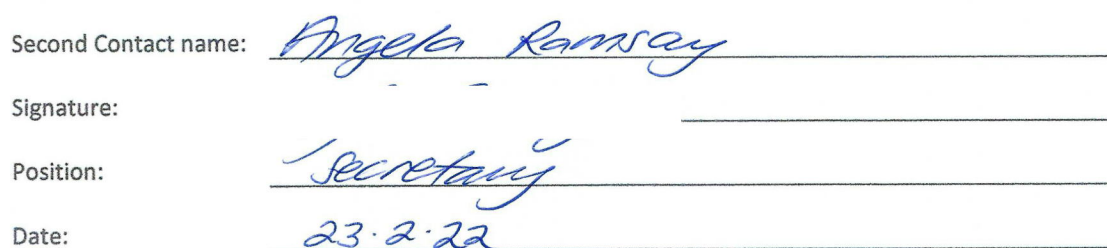 Second Contact name: Angela Ramsay
Signature:
Position: Secretary
Date: 23.2.22